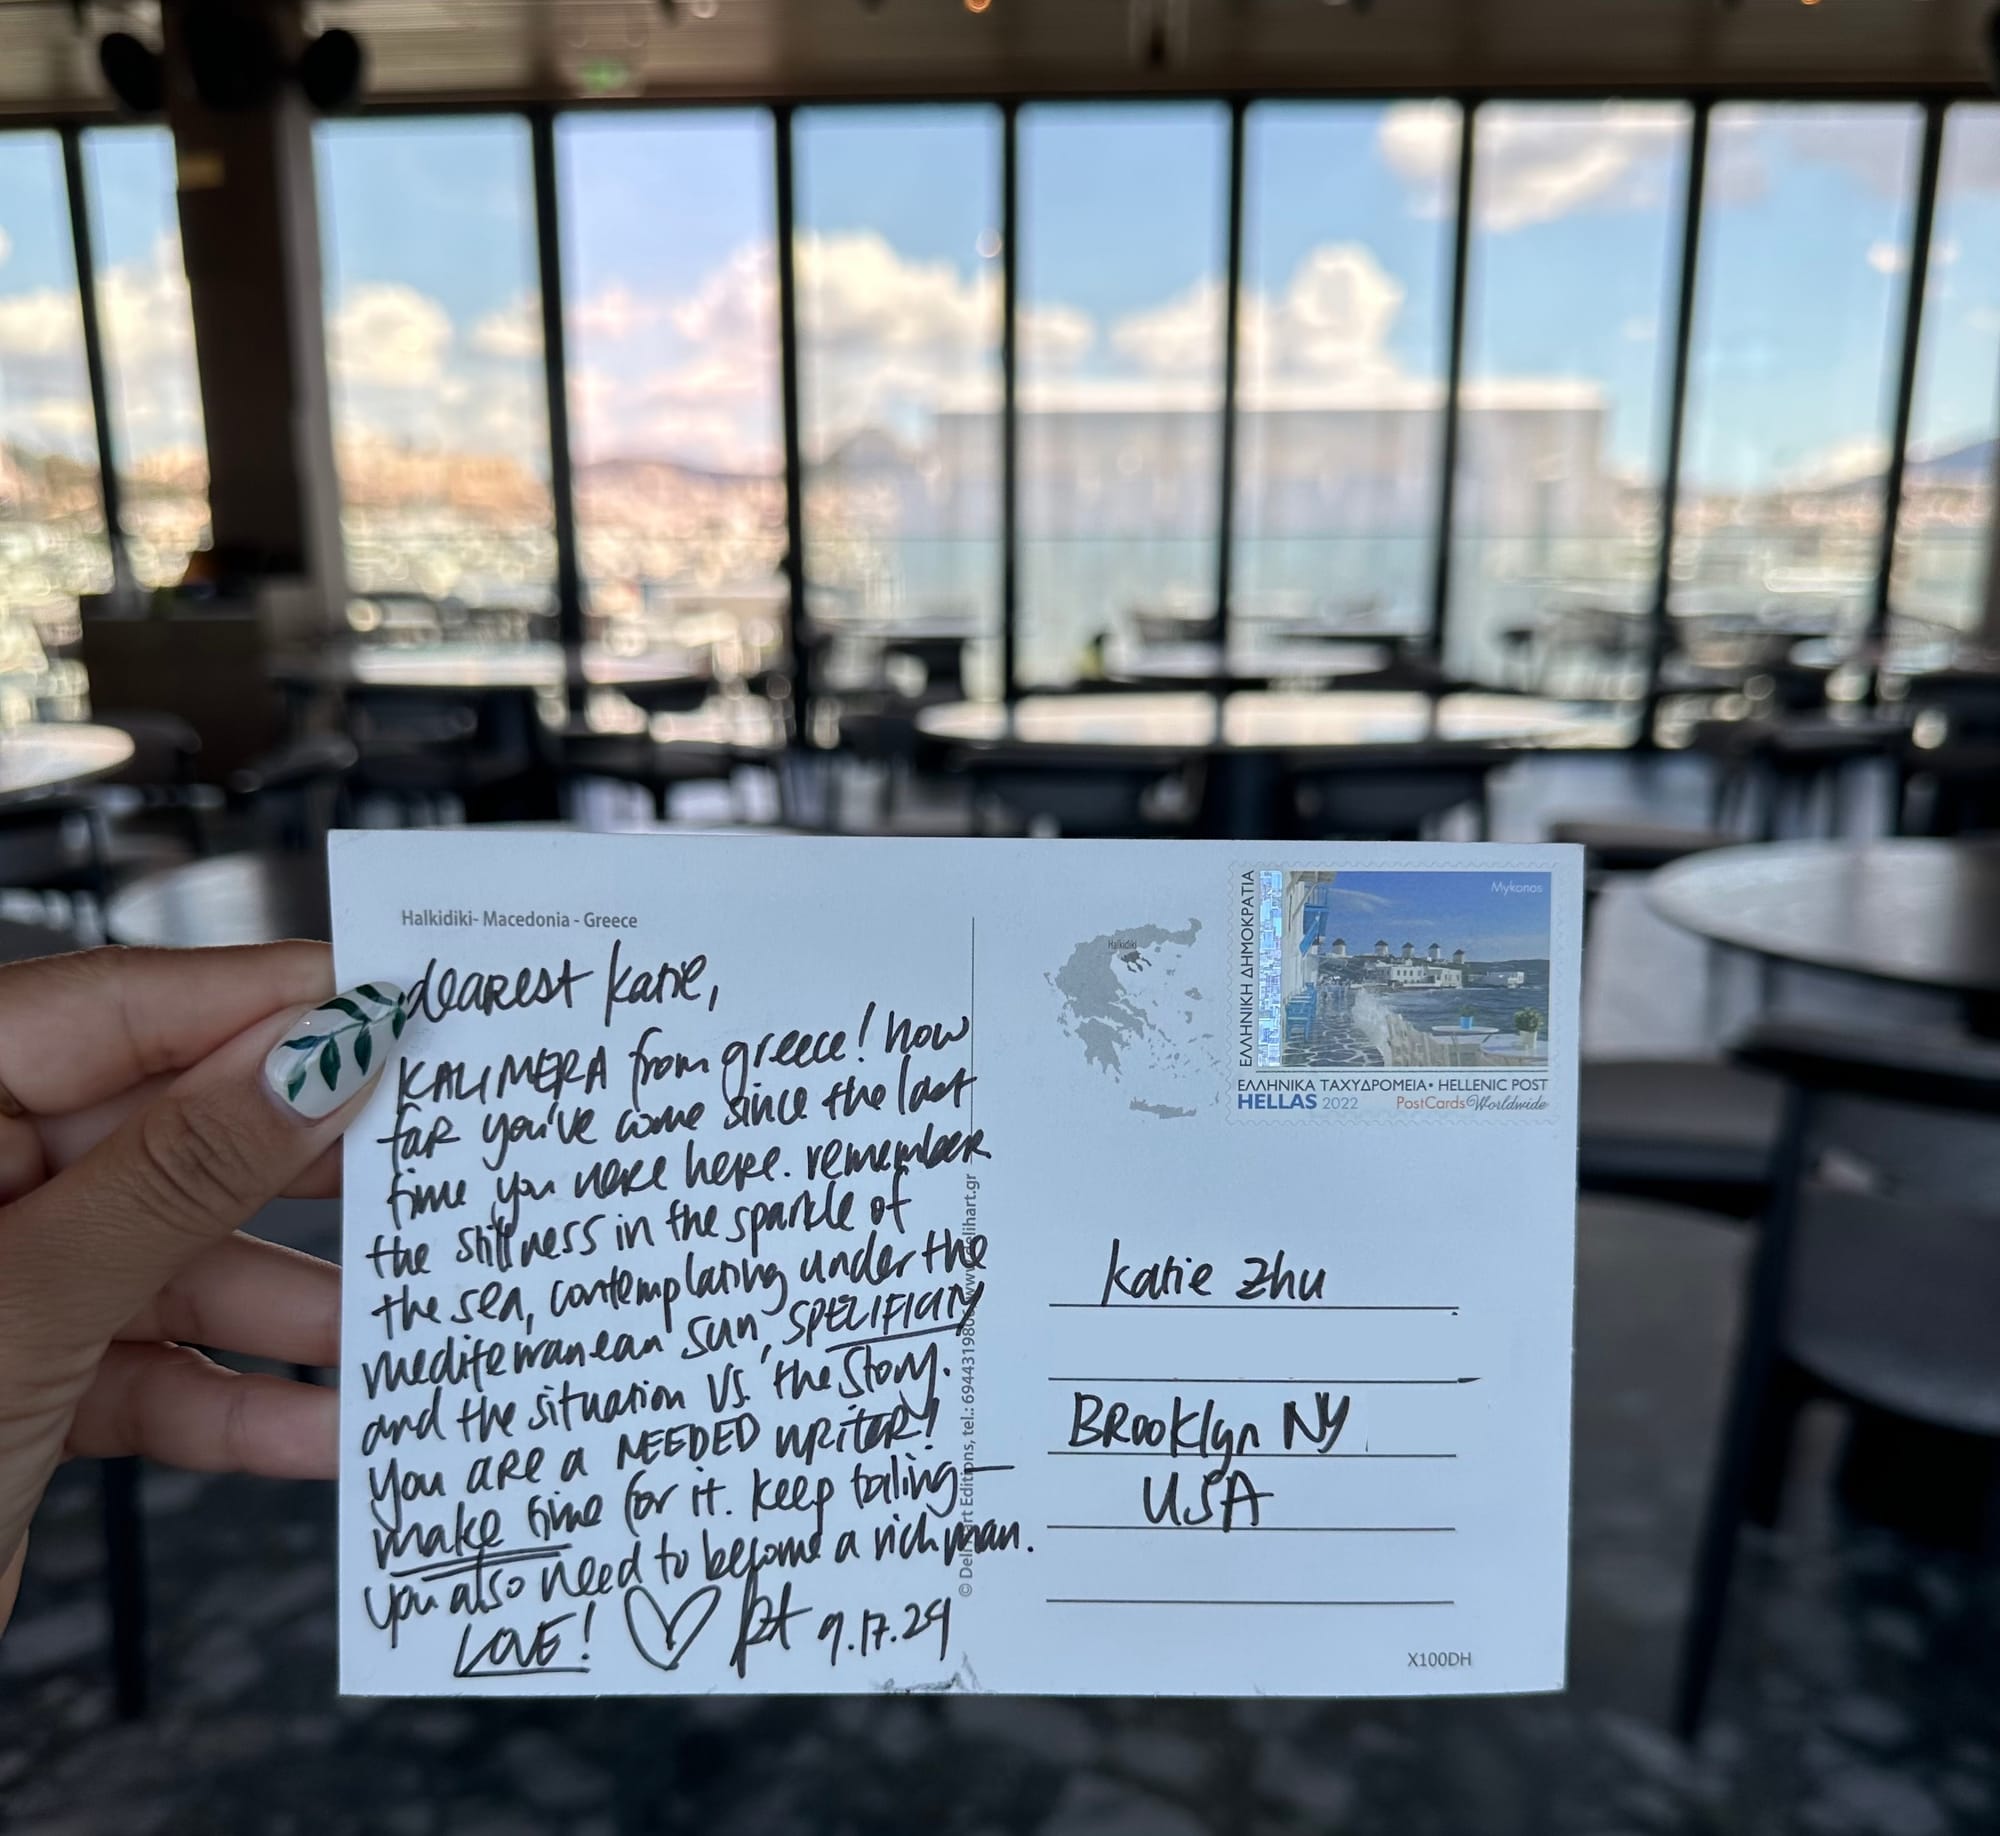 Halkidiki- Macedonia - Greece
dearest katie,
KALIMERA from greece! how
far you've come since the last
time you were here. remember
the stillness in the sparkle of
the sea, contemplating under the
mediterranean sun, SPECIFICITY
and the situation vs. the story.
you are a NEEDED writer!
make time for it. keep failing—
you also need to become a rich man.
LOVE! ♡ kt 9.17.24
Halkidiki
ΕΛΛΗΝΙΚΗ ΔΗΜΟΚΡΑΤΙΑ
Mykonos
ΕΛΛΗΝΙΚΑ ΤΑΧΥΔΡΟΜΕΙΑ • HELLENIC POST
HELLAS 2022 PostCards Worldwide
Editions, tel.: 6944319806
katie zhu
Brooklyn NY
USA
X100DH